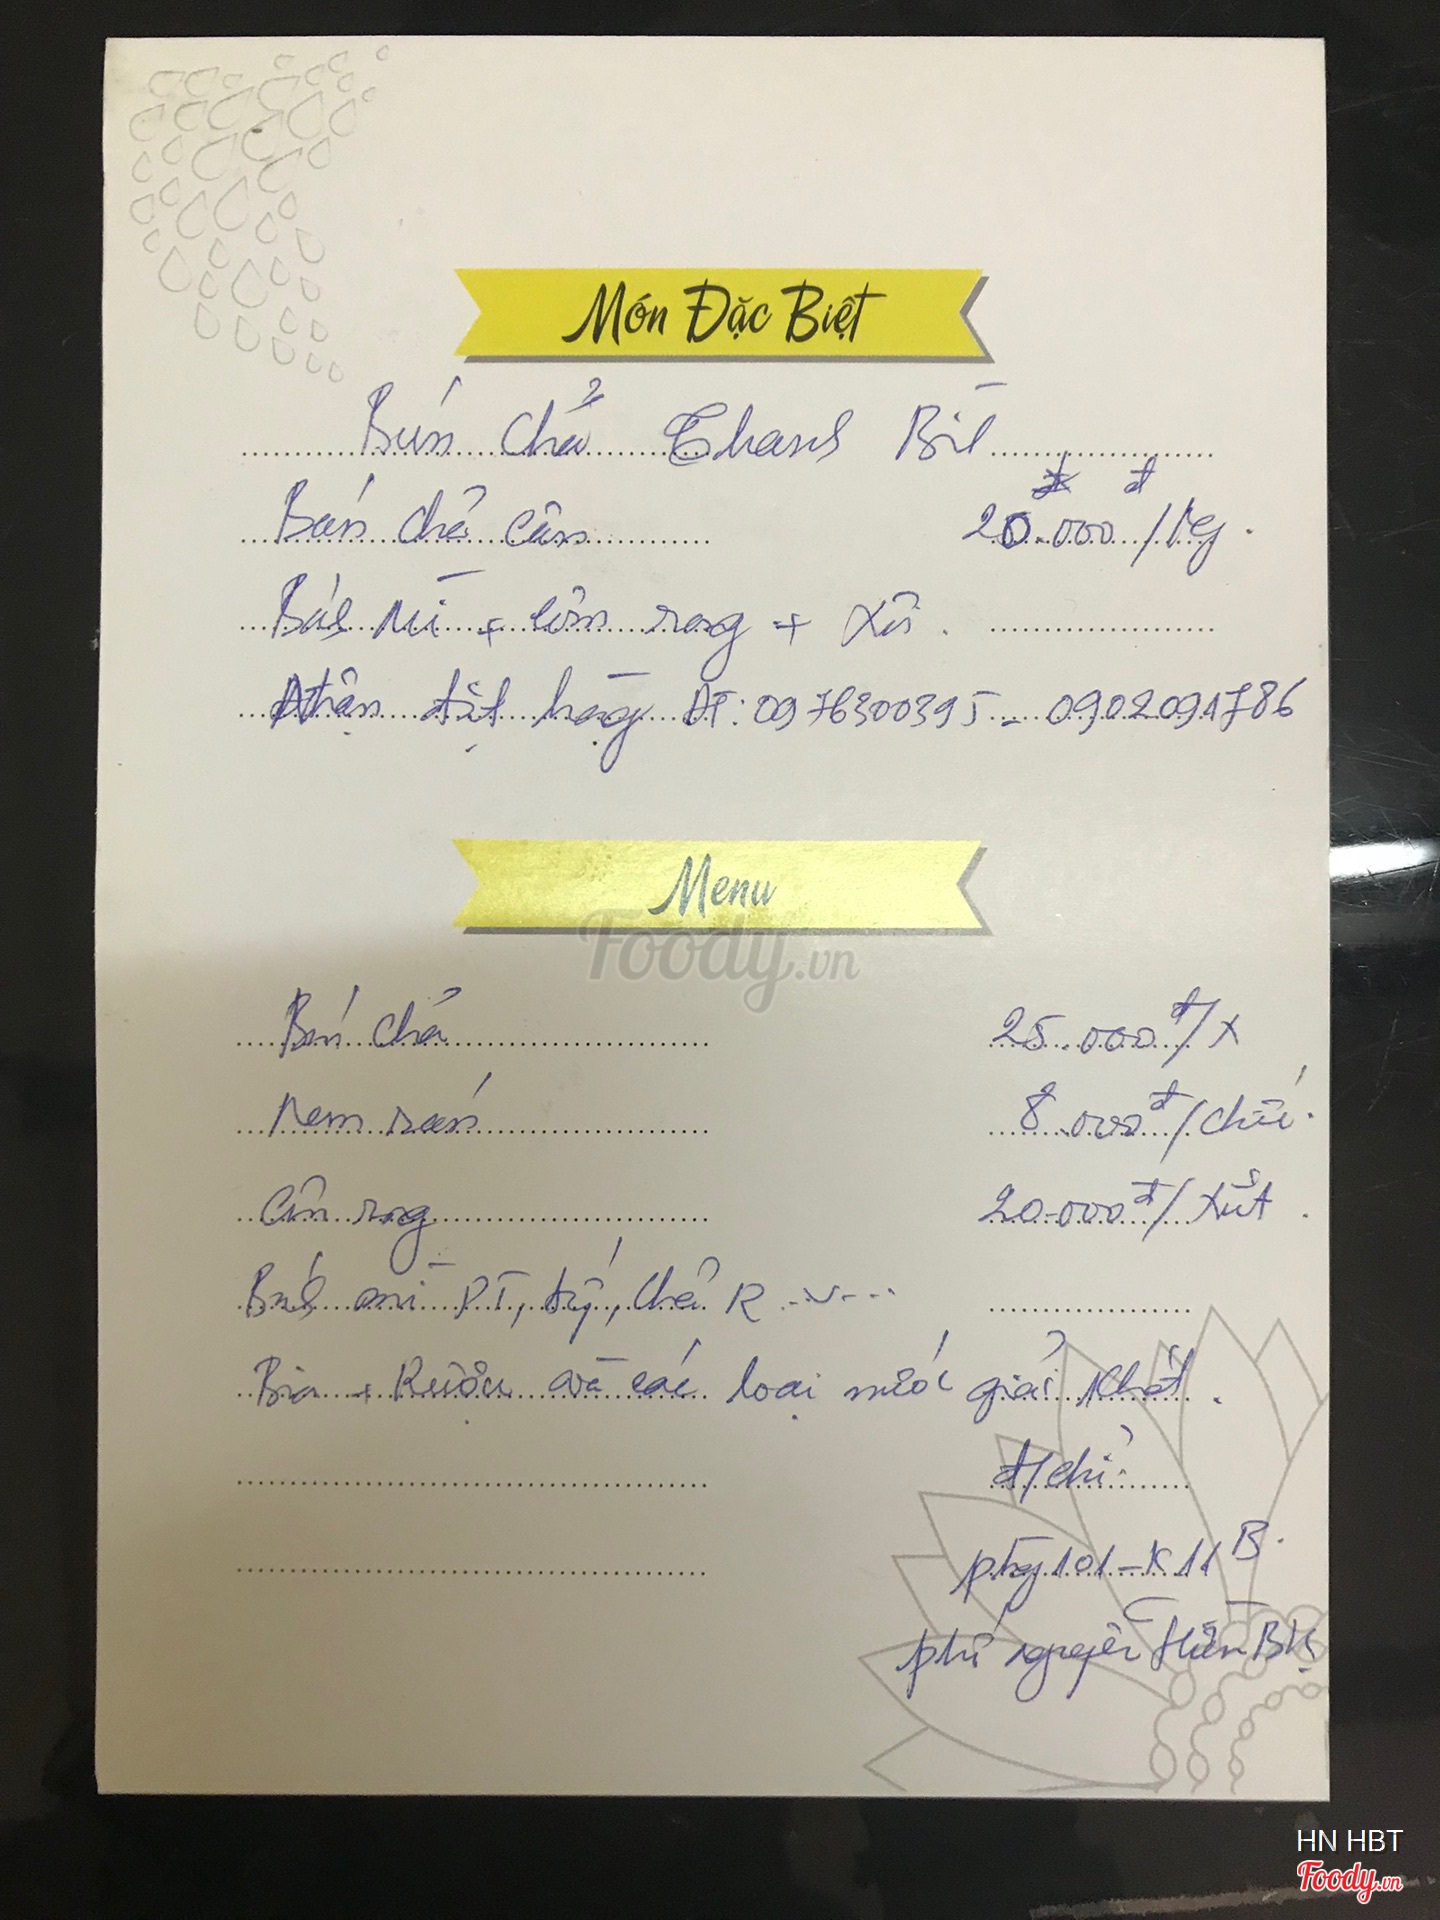 Món Đặc Biệt
Bún chả Thanh Bì
Bún chả cân 20.000đ/kg.
Bánh Mì + lòn rang + Xôi.
Nhận đặt hàng ĐT: 0976300395 - 0902091786
Menu
Foody.vn
Bún chả 25.000đ/X
Nem rán 8.000đ/chiếc.
rang 20.000đ/xuất.
Bánh mì PT, chả R
Bia + Rượu và các loại nước giải khát.
đ/chỉ:
phòng 101-K11B.
phố nguyễn Hiền BK
HN HBT
Foody.vn